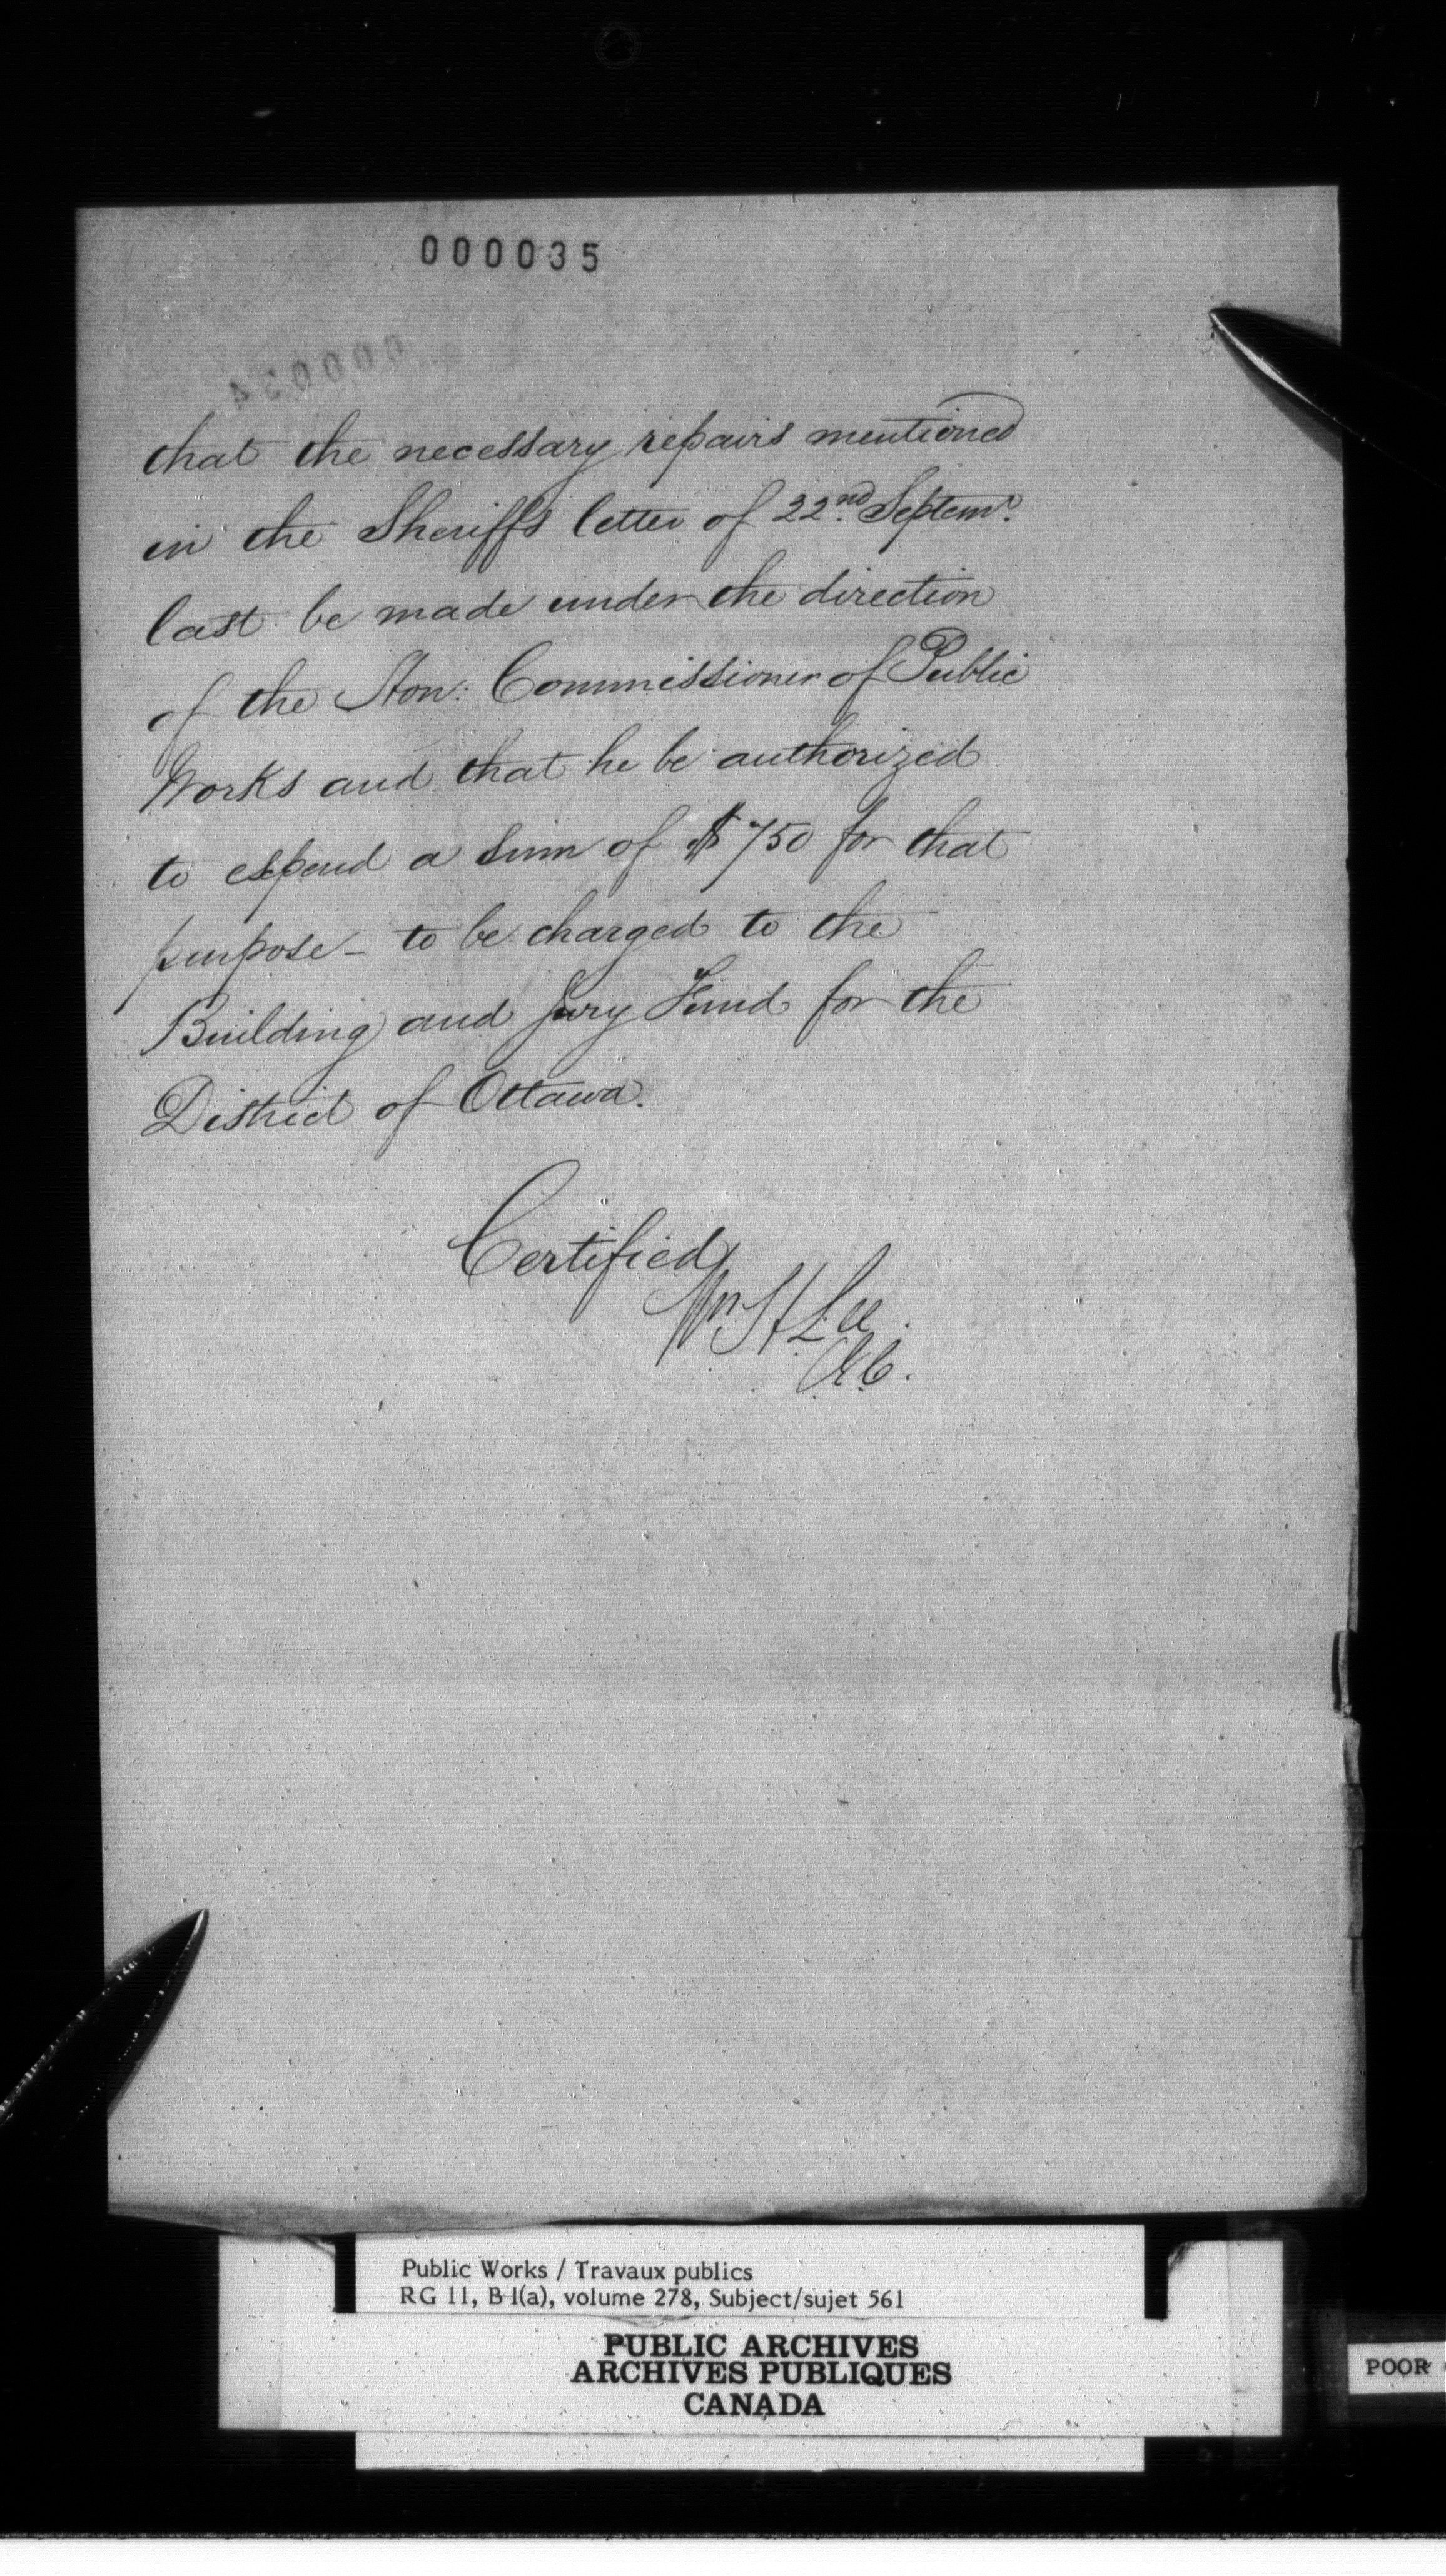 000035
000034
that the necessary repairs mentioned
in the Sheriffs letter of 22nd. Septemr.
last be made under the direction
of the Hon: Commissioner of Public
Works and that he be authorized
to expend a sum of $750 for that
purpose - to be charged to the
Building and Jury Fund for the
District of Ottawa.
Certified
Wm H Lee.
Public Works / Travaux publics
RG 11, B 1(a), volume 278, Subject/sujet 561
PUBLIC ARCHIVES
ARCHIVES PUBLIQUES
CANADA
POOR